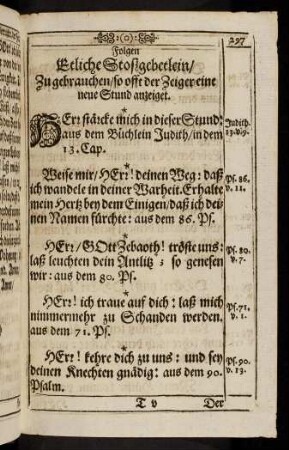 297
Folgen
Etliche Stoßgebetlein/
Zu gebrauchen/ so offt der Zeiger eine
neue Stund anzeiget.
*
HErr stärcke mich in dieser Stund:
aus dem Büchlein Judith/ in dem
13. Cap.
Judith.
13. v. 9.
*
Weise mir/ HErr! deinen Weg: daß
ich wandele in deiner Warheit. Erhalte
mein Hertz bey dem Einigen/ daß ich dei-
nen Namen fürchte: aus dem 86. Ps.
Ps. 86.
v. 11.
*
HErr/ GOtt Zebaoth! tröste uns:
laß leuchten dein Antlitz; so genesen
wir: aus dem 80. Ps.
Ps. 80.
v. 7.
*
HErr! ich traue auf dich: laß mich
nimmermehr zu Schanden werden.
aus dem 71. Ps.
Ps. 71.
v. 1.
*
HErr! kehre dich zu uns: und sey
deinen Knechten gnädig: aus dem 90.
Psalm.
Ps. 90.
v. 13.
T v
Der